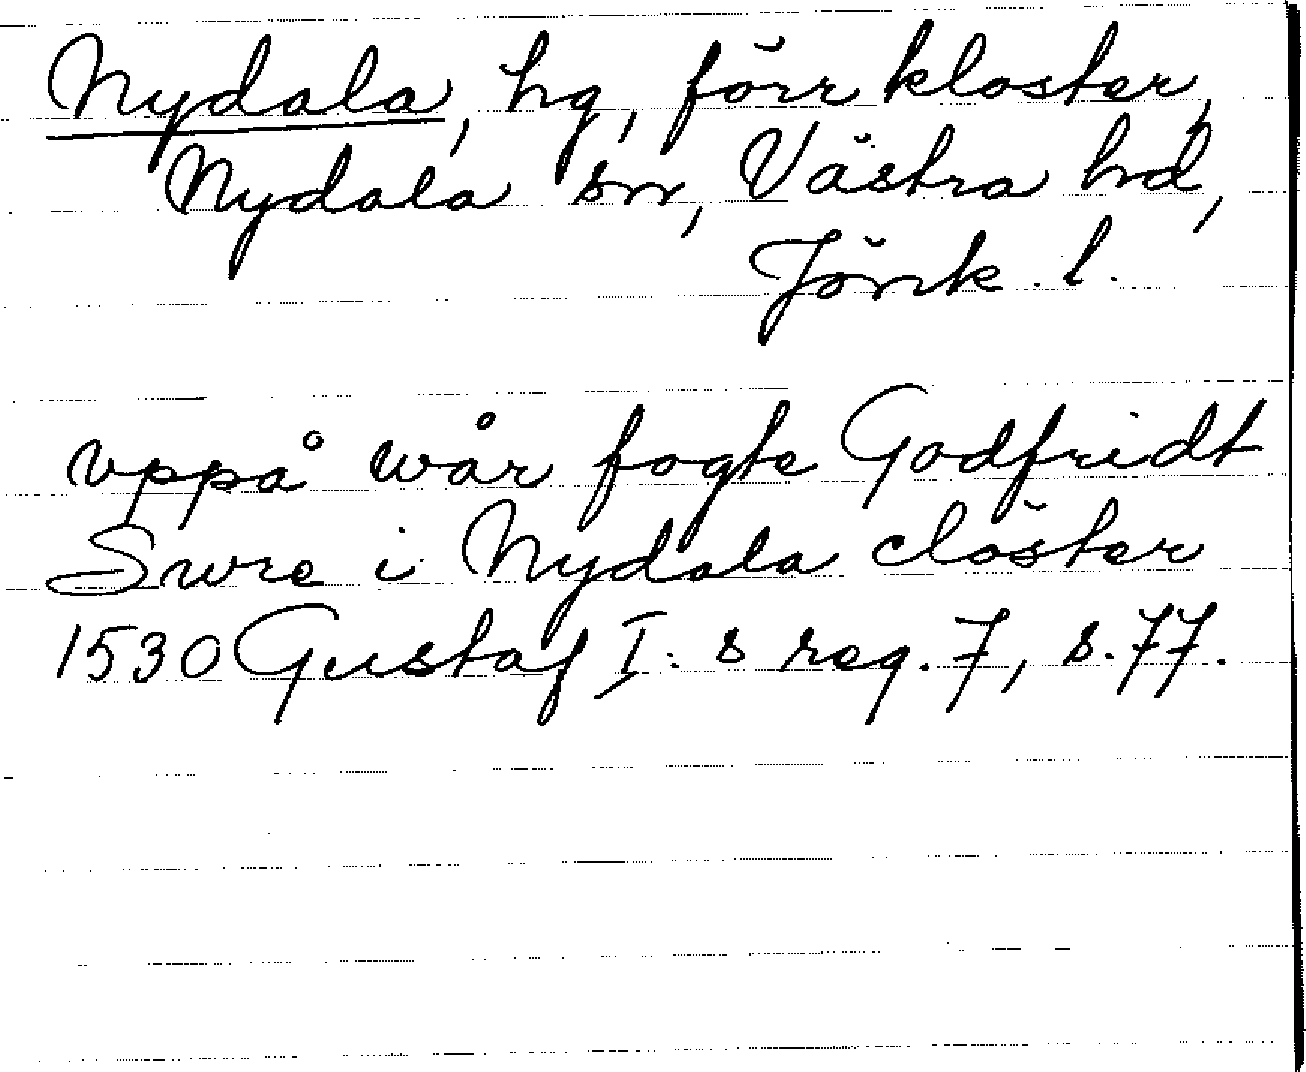 Nydala, hg, förr kloster,
Nydala sn, Västra hd,
Jönk. l.
vppå wår fogte Godfridt
Swre i Nydala clöster
1530 Gustaf I:s reg. 7, s. 77.